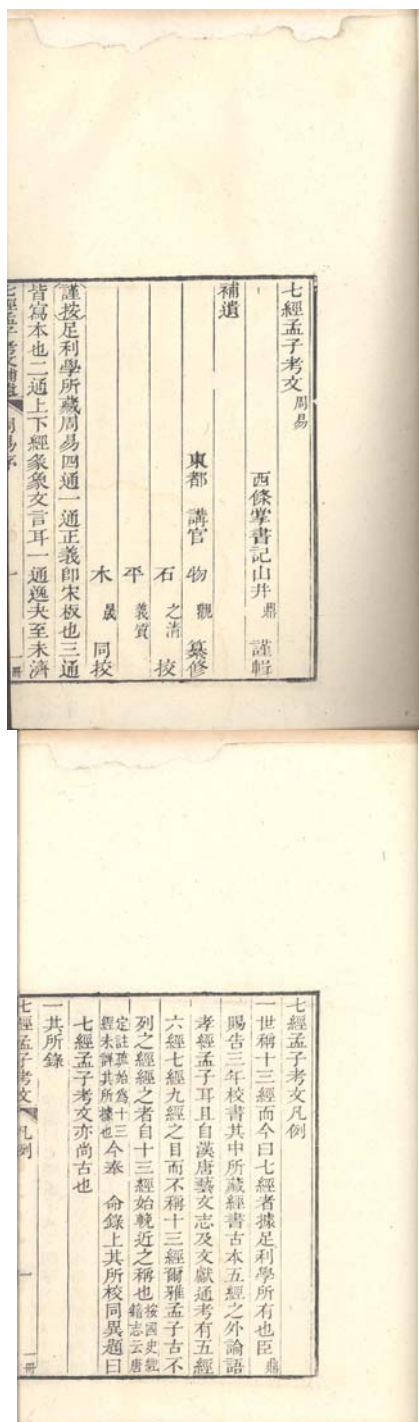 七經孟子考文周易
西條掌書記山井鼎謹輯
補遺
東都講官物觀纂修
石之清挍
平義質
木晟同挍
謹按足利學所藏周易四通一通正義即宋板也三通
皆寫本也二通上下經彖象文言耳一通逸夬至未濟
七經孟子考文補遺 周易序 一 冊
七經孟子考文凡例
一世稱十三經而今曰七經者據足利學所有也臣鼎
賜告三年校書其中所藏經書古本五經之外論語
孝經孟子耳且自漢唐藝文志及文獻通考有五經
六經七經九經之目而不稱十三經爾雅孟子古不
列之經經之者自十三經始輓近之稱也按國史經籍志云唐
定註疏始爲十三經未詳其所據也今奉 命錄上其所校同異題曰
七經孟子考文亦尚古也
一其所錄
七經孟子考文 凡例 一 冊